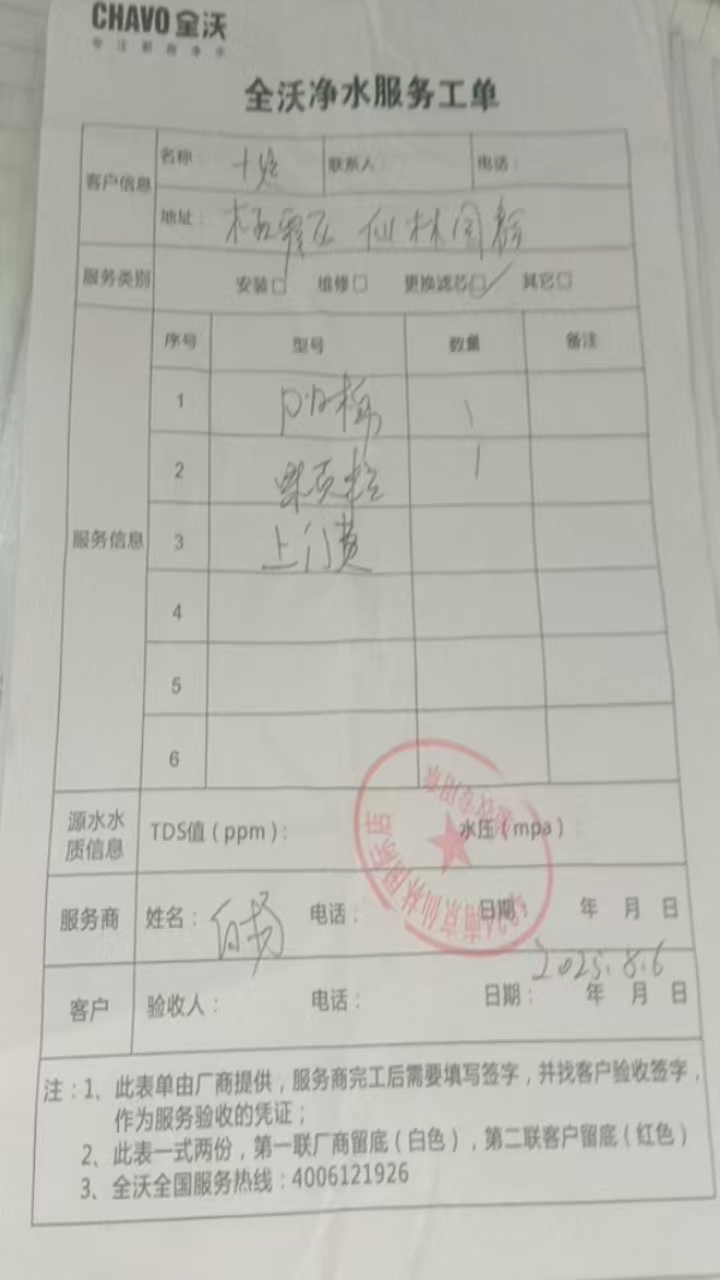 CHAVO 全沃
专注厨房净水
全沃净水服务工单
客户信息 名称： 联系人： 电话：
地址：栖霞区 仙林国际
服务类别 安装□ 维修□ 更换滤芯□✓ 其它□
服务信息 序号 型号 数量 备注
1 PP棉 1
2 颗粒 1
3 上门费
4
5
6
源水水质信息 TDS值（ppm）： 水压（mpa）：
南京仙林国际店
服务商 姓名： 电话： 日期： 年 月 日
2025.8.6
客户 验收人： 电话： 日期： 年 月 日
注：1、此表单由厂商提供，服务商完工后需要填写签字，并找客户验收签字，
作为服务验收的凭证；
2、此表一式两份，第一联厂商留底（白色），第二联客户留底（红色）
3、全沃全国服务热线：4006121926